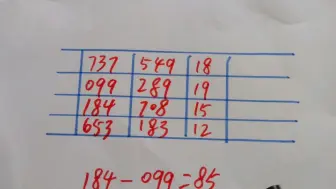 737 549 18
099 289 19
184 708 15
653 183 12
184-099=85